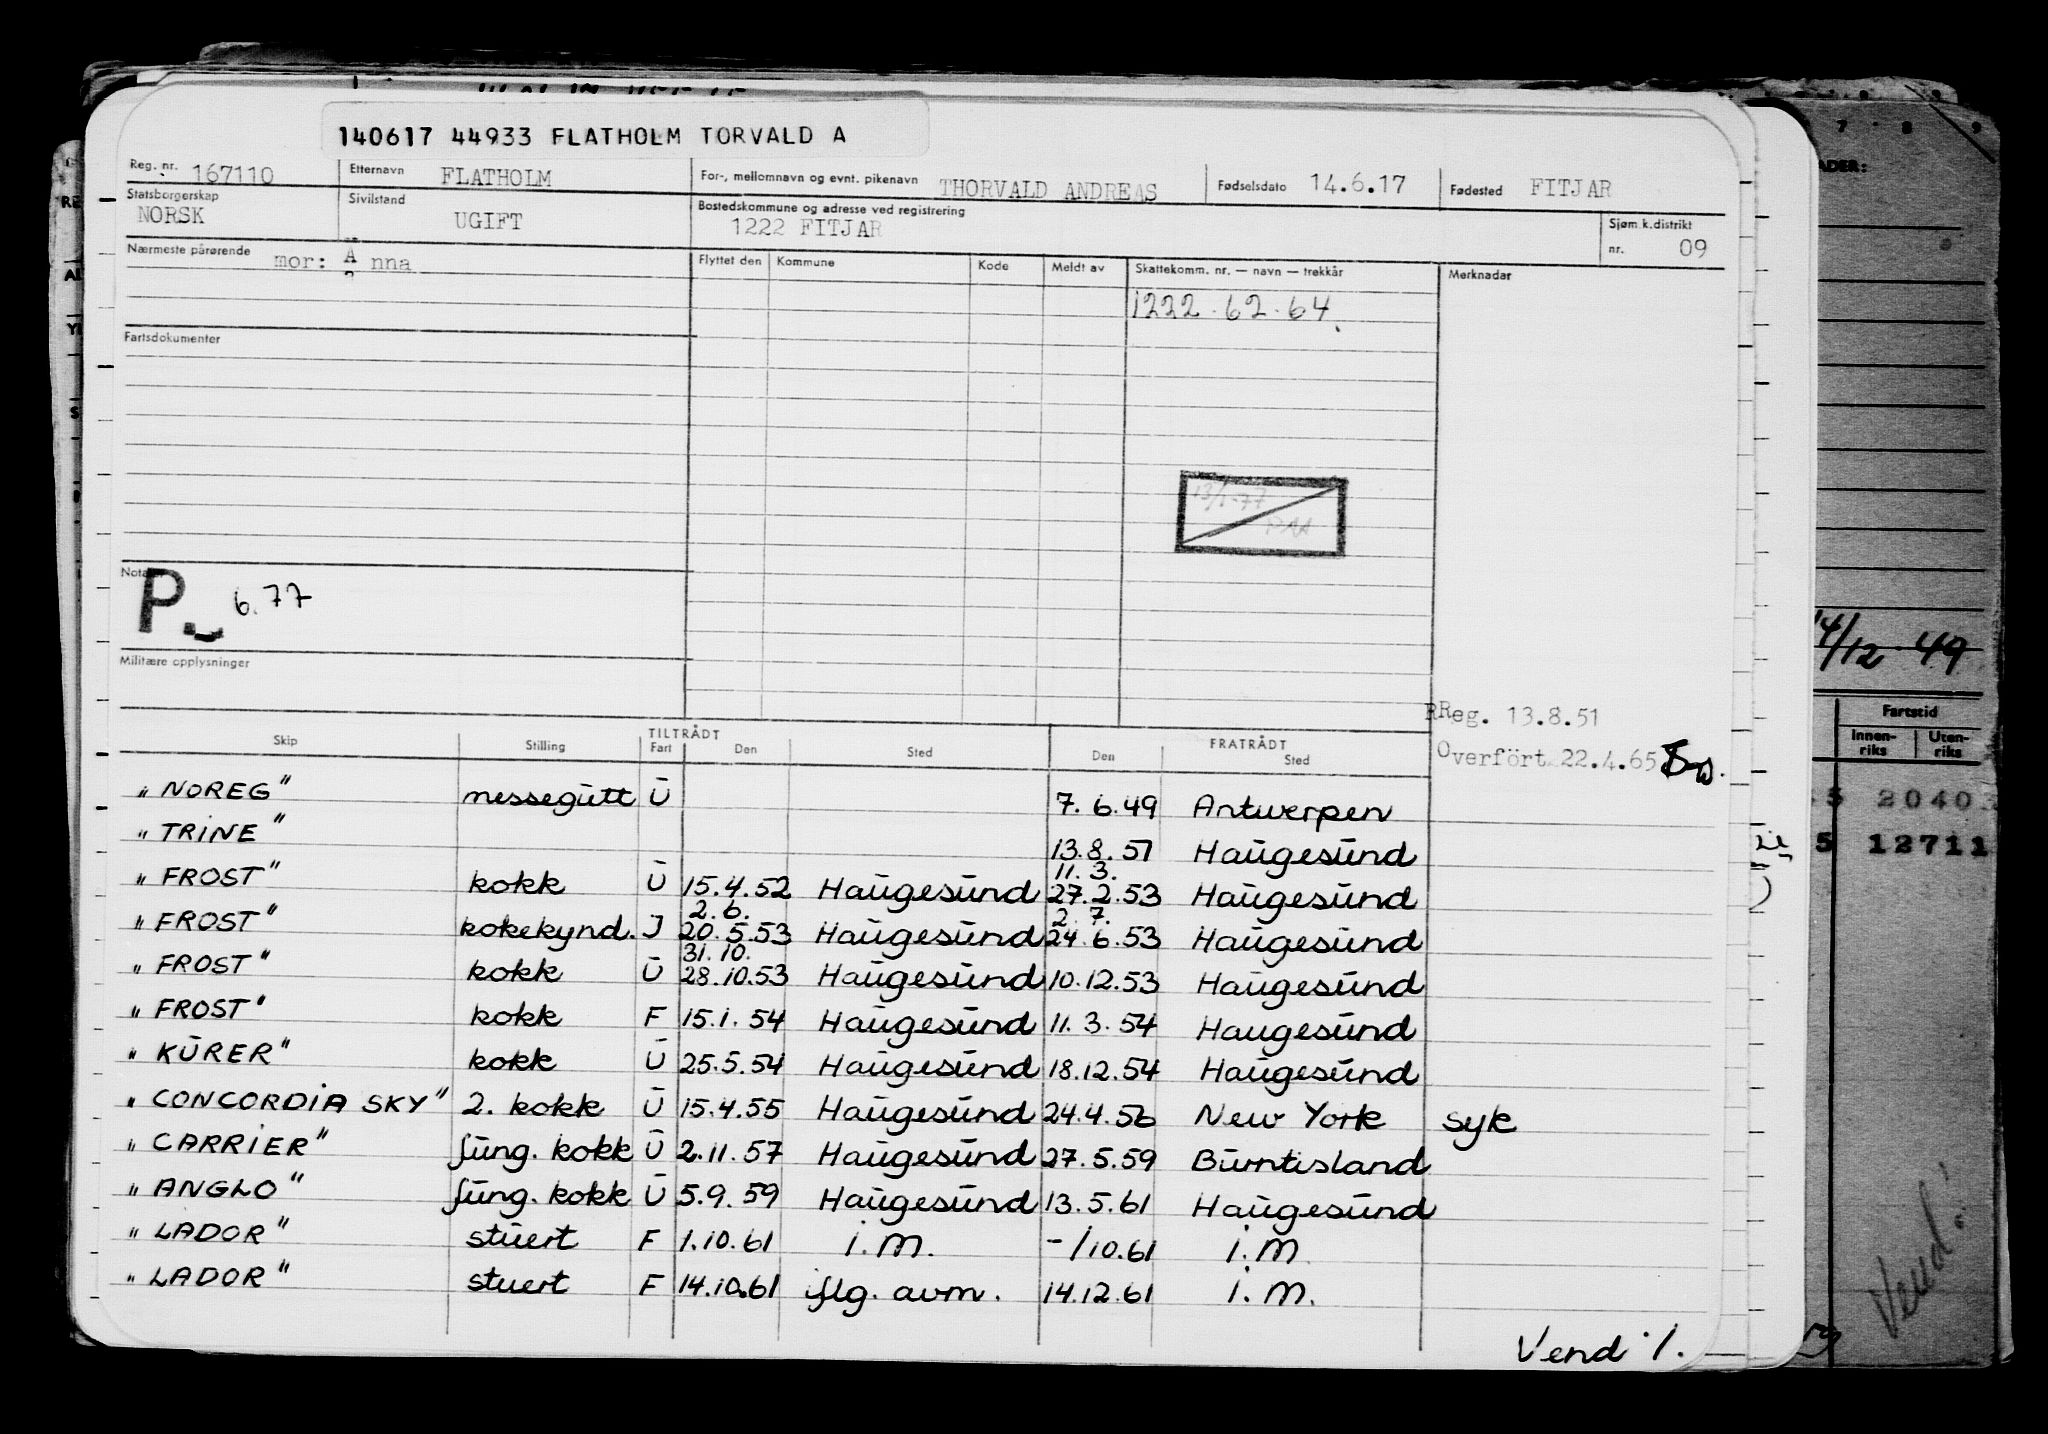 140617 44933 FLATHOLM TORVALD A
Reg. nr. 167110 Etternavn FLATHOLM For-, mellomnavn og evnt. pikenavn THORVALD ANDREAS Fødselsdato 14.6.17 Fødested FITJAR
Statsborgerskap NORSK Sivilstand UGIFT Bostedskommune og adresse ved registrering 1222 FITJAR Sjøm.k.distrikt nr. 09
Nærmeste pårørende mor: Anna Flyttet den Kommune Kode Meldt av Skattekomm. nr. — navn — trekkår Merknadar
1222.62.64.
Fartsdokumenter
13/1-77
Nota
P. 6.77
Militære opplysninger
RReg. 13.8.51
Overført 22.4.65
TILTRÅDT FRATRÅDT
Skip Stilling Fart Den Sted Den Sted
"NOREG" messegutt U 7.6.49 Antwerpen
"TRINE" 13.8.51 Haugesund
11.3.
"FROST" kokk U 15.4.52 Haugesund 27.2.53 Haugesund
2.6. 2.7.
"FROST" kokekynd. I 20.5.53 Haugesund 24.6.53 Haugesund
31.10.
"FROST" kokk U 28.10.53 Haugesund 10.12.53 Haugesund
"FROST" kokk F 15.1.54 Haugesund 11.3.54 Haugesund
"KURER" kokk U 25.5.54 Haugesund 18.12.54 Haugesund
"CONCORDIA SKY" 2. kokk U 15.4.55 Haugesund 24.4.56 New York syk
"CARRIER" fung. kokk U 2.11.57 Haugesund 27.5.59 Burntisland
"ANGLO" fung. kokk U 5.9.59 Haugesund 13.5.61 Haugesund
"LADOR" stuert F 1.10.61 i.m. -/10.61 i.m
"LADOR" stuert F 14.10.61 iflg. avm. 14.12.61 i.m.
Vend ./.
7 8 9
ADER:
14/12-49
Fartstid
Innen-riks Uten-riks
5 2040
5 12711
Vend!